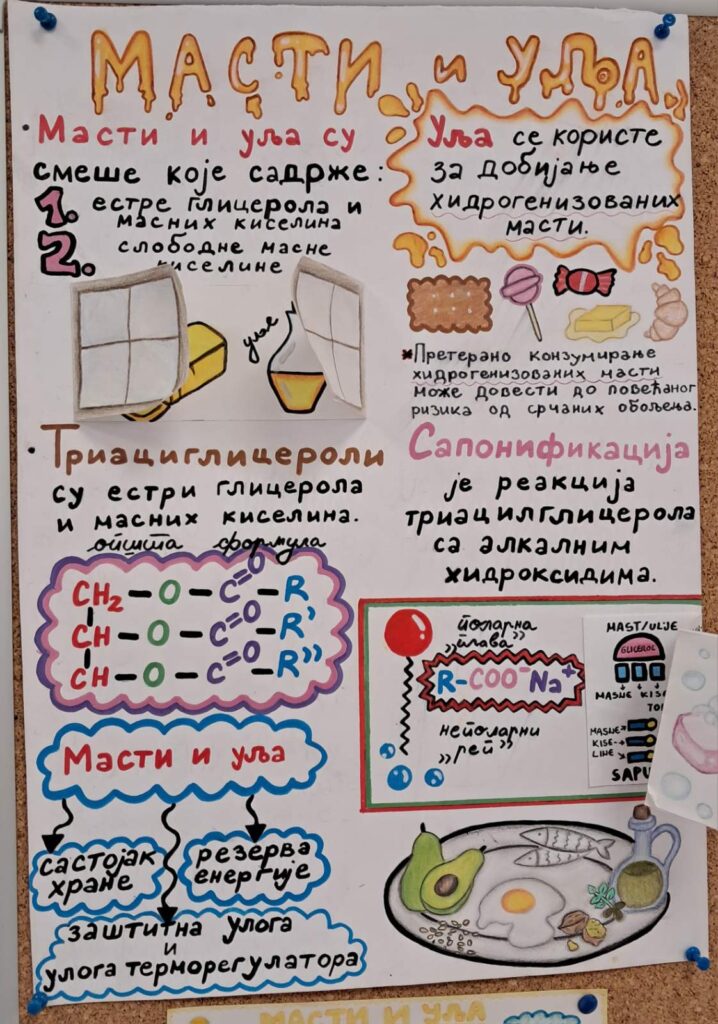 МАСТИ и УЉА
• Масти и уља су
смеше које садрже:
1. естре глицерола и
масних киселина
2. слободне масне
киселине
уље
Уља се користе
за добијање
хидрогенизованих
масти.
*Претерано конзумирање
хидрогенизованих масти
може довести до повећаног
ризика од срчаних обољења.
• Триациглицероли
су естри глицерола
и масних киселина.
општа формула
CH₂–O–C=O–R
CH–O–C=O–R'
CH–O–C=O–R''
Сапонификација
је реакција
триацилглицерола
са алкалним
хидроксидима.
поларна
„глава”
R-COO⁻Na⁺
неполарни
„реп”
MAST/ULJE
GLICEROL
MASNE
MASNE
KISE-
LINE
Масти и уља
састојак
хране
резерва
енергије
заштитна улога
и
улога терморегулатора
МАСТИ И УЉА